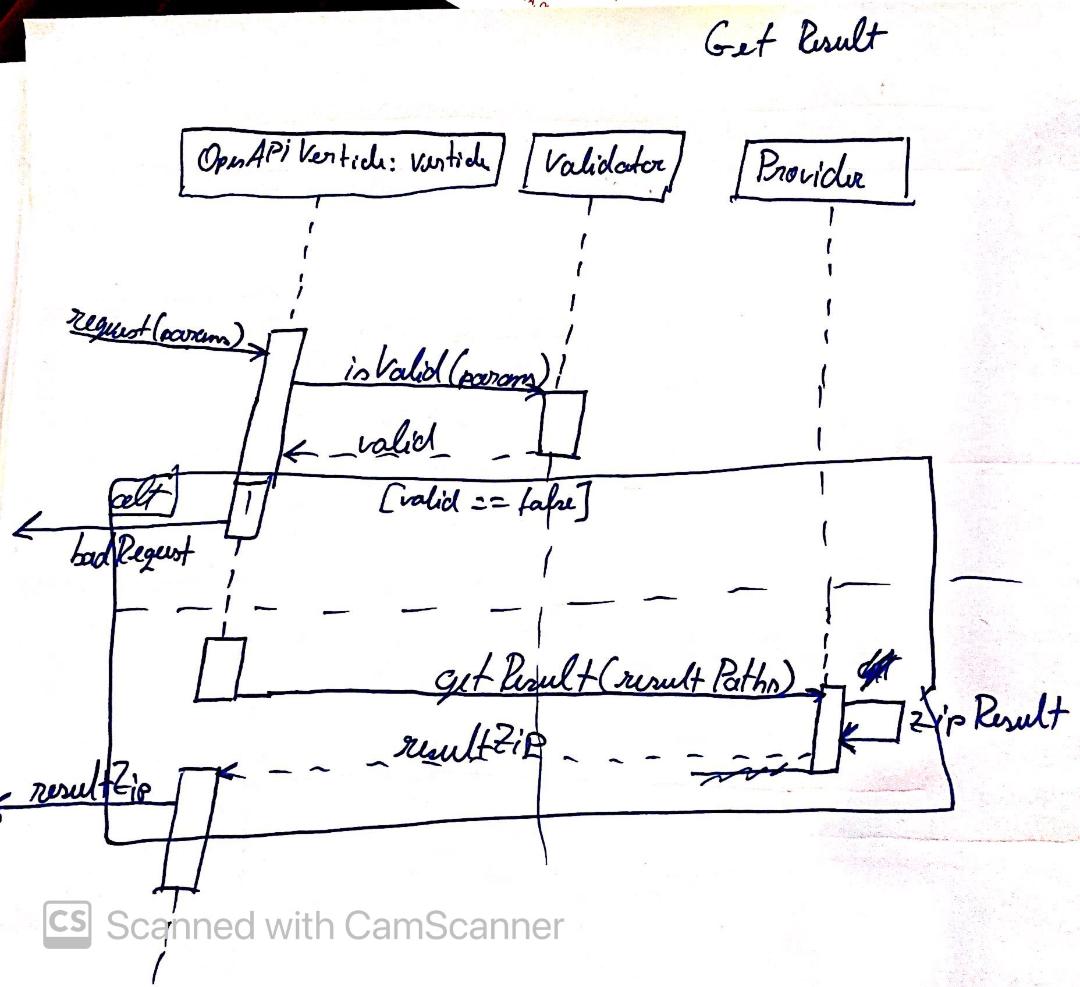 Get Result
OpenAPi Verticle: verticle
Validator
Provider
request(params)
isValid(params)
valid
alt
[valid == false]
badRequest
getResult(resultPaths)
zipResult
resultZip
resultZip
CS Scanned with CamScanner